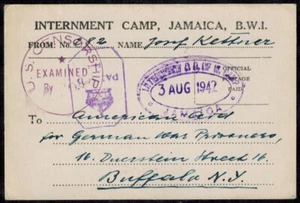 INTERNMENT CAMP, JAMAICA, B.W.I.
FROM: No. 282 NAME: Josef Kettner
U.S. CENSORSHIP
EXAMINED
By
INTERNMENT
3 AUG 1942
JAMAICA
OFFICIAL
PAID
To American Aid
for German War Prisoners,
16. Duerstein Street 16.
Buffalo N.Y.